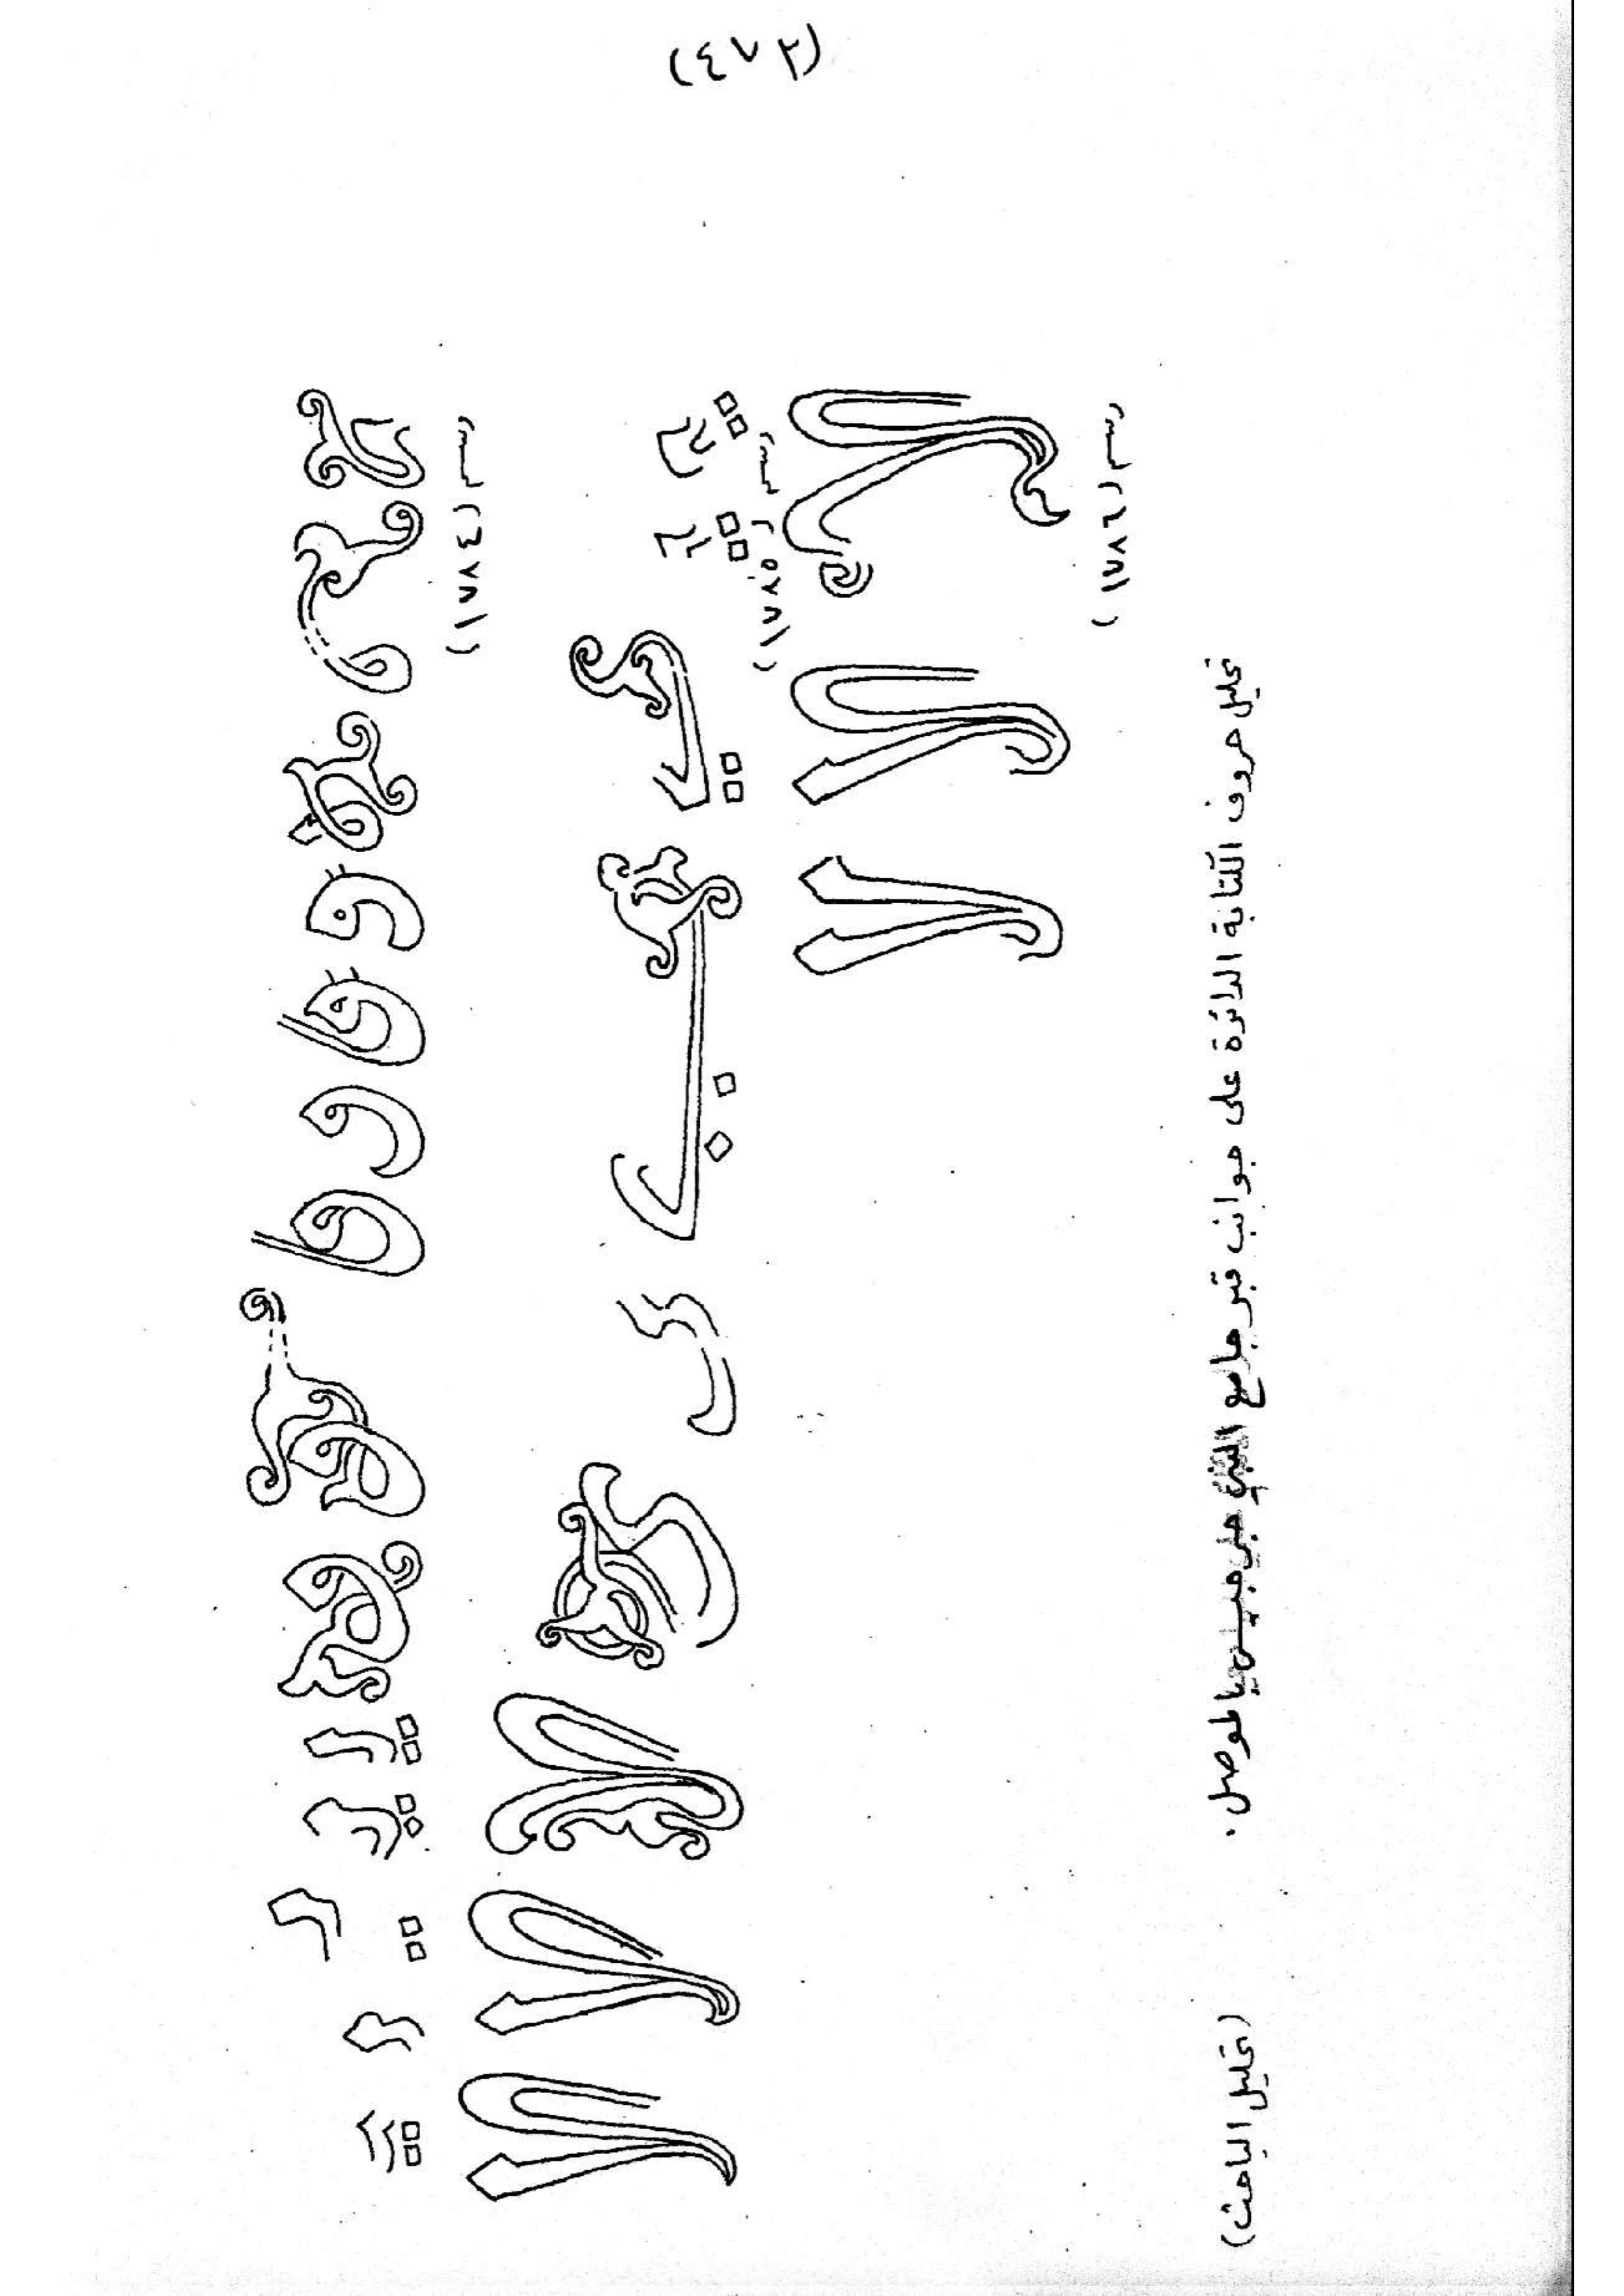 (٤٧٢)
رسم (١٧٨٤)
رسم (١٧٨٥)
رسم (١٧٨٦)
تحليل حروف الكتابة الدائرة على جوانب قبر جامع النبي جرجيس بالموصل.
(تحليل الباحث)